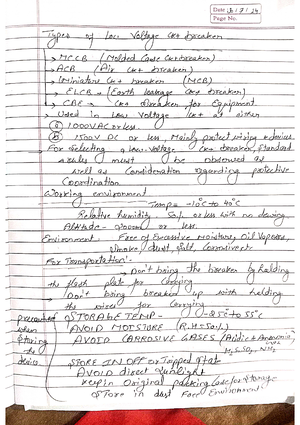 Date 16/7/24
Page No.
Types of Low Voltage Ckt breaker
→ MCCB (Molded Case Cktbreaker)
→ ACB (Air Ckt breaker)
→ Miniature Ckt breaker (MCB)
→ ELCB → (Earth leakage Ckt breaker)
→ CBE → Ckt Breaker for Equipment
→ Used in Low Voltage Ckt at either
1000VAC or less
1500V DC or less, Mainly protect
→ For selecting a low-voltage Ckt breaker, Standard
rules must be observed as
well as Consideration regarding protective
Coordination
Working environment
Temp = -10°C to 40°C
Relative humidity or less with no dewing
Altitude - 2000m or less
Environment Free of Excessive Moisture, Oil Vapours,
Smoke, dust, Salt, Corrosives
For Transportation:-
→ Don't bring the breaker by holding
the flash plate for Carrying
→ Don't bring breaker up with holding
the wires for Carrying
when storing the device
STORAGE TEMP - -25°C to 55°C
AVOID MOISTURE (R.H=50%)
AVOID CORROSIVE GASES (Acidic & Ammonia,
STORE IN OFF or Tripped State
AVOID direct Sunlight
Keep in Original packing Case for Storage
Store in dust Free Environment